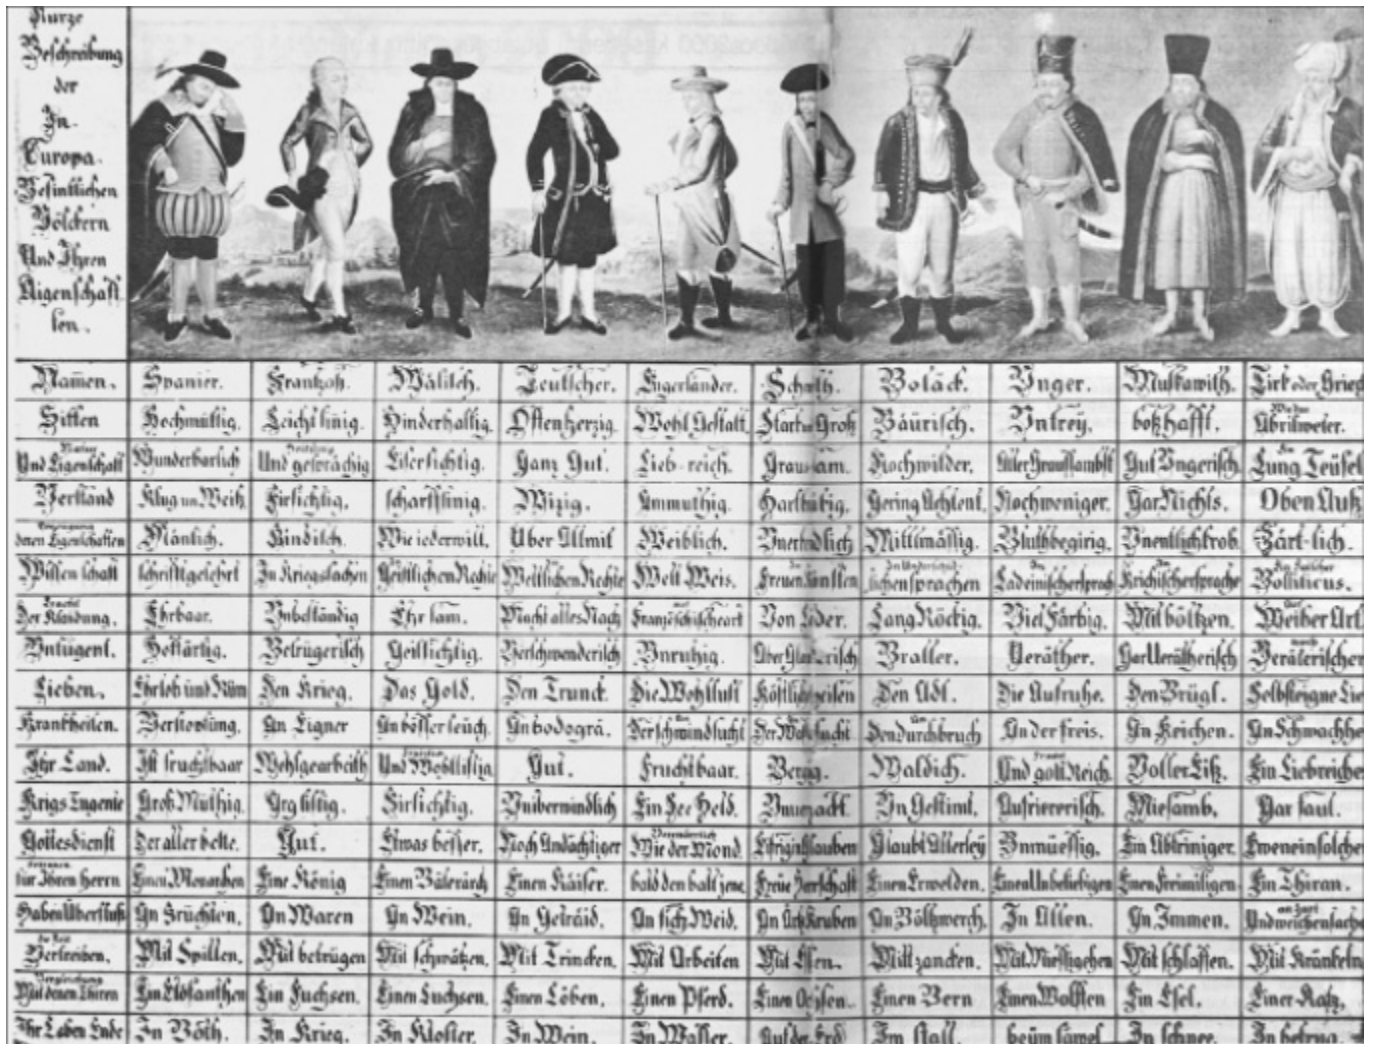 Kurze
Beschreibung
der
In
Europa
Befintlichen
Völckern
Und Ihren
Aigenschaff
ten.
Namen. Spanier. Frantzoß. Wälisch. Teutscher. Engerländer. Schwith. Boläck. Vnger. Muskawith. Tirk oder Griech
Sitten Hochmüttig. Leicht sinig. Hinderhaltig. Offenherzig. Wohl Gestalt. Starck und Groß Bäurisch. Vntrey. boßhafft. Wie das Abrilweter.
Und Eigenschaft Wunderbarlich Und gesprächig Eifersichtig. Ganz Gut. Lieb-reich. Graussam. Nochwilder. Aller Graussambst Gut Vngerisch. Lung Teüfel
Verstand Klug un Weiß Firsichtig. scharffsinig. Wizig. Ammuthig. Hartknkig. Gering Achtent. Nochweniger. Gar Nichts. Oben Auß
deren Eigenschaften Mänlich. Kindisch. Wie iederwill. Über Allmit Weiblich. Vnerkendlich Mittlmässig. Bluthbegirig. Vnentlichkrob. Zärt-lich.
Wissenschaft schrifftgelehrt In Kriegssachen Geistlichen Rechte Weltlichen Rechte Welt Weis. In Freuen Künsten lichensprachen In Ladeinischersprach In Krichischersprache Bolliticus.
Der Klaidung. Ehrbaar. Vnbeständig Ehr sam. Macht alles Nach Französchischeart Von Löder. Lang Röckig. Viel Färbig. Mit böltzen. Weiber Art
Vntugent. Hoffärtig. Betrügerisch Geillsichtig. Verschwenderisch Vnruhig. Aber Glaubrisch Braller. Veräther. Gar Verätherisch Verätrischer
Lieben. Ehrlob und Rüm Den Krieg. Das Gold. Den Trunck. Die Wohllust Köstlichspeisen Den Adl. Die Aufruhr. Den Brügl. Selbsteigne Lie
Krankheiten. Verstopfung. An Eigner An bösser seuch. An bodogrä. Der schwindsucht Der Wassersucht Den durchbruch An der freis. An Keichen. An Schwachhe
Ihr Land. Ist fruchtbaar Wohlgearbeith Und Wohllistig Gut. Fruchtbaar. Bergig. Waldich. Und golt Reich. Voller Eiß. Ein Liebreiche
Krigs Tugente Groß Muthig. Arg listig. Firsichtig. Vnüberwindlich Ein See Held. Vnverzackt. Vn Gestimt. Aufriererisch. Miesamb. Gar faul.
Gottesdienst Der aller beste. Gut. Etwas besser. Noch Andächtiger Wie der Mond. Eifrig in Glauben Glaubt Allerley Vnmüessig. Ein Abtriniger. Eweneinsolche
für Ihren Herrn Einen Monarchen Eine König Einen Bäterärch Einen Käiser. bald den balt jene Freue Herrschaft Einen Erwelden. Einen Unbeliebigen Einen Freimilligen Ein Thiran.
Haben Überfluß An Früchten. An Waren An Wein. An Geträid. An fich Weid. An Ärtz Kruben An Böltzwerch. In Allen. An Immen. Und weichensache
Vertreiben. Mit Spillen. Mit betrügen Mit schwätzen. Mit Trincken. Mit Arbeiten Mit Essen. Mitt zancken. Mit Müessigehen Mit schlaffen. Mit Kränkeln
Mit denen Thiren Ein Elofanthen Ein Fuchsen. Einen Luchsen. Einen Löben. Einen Pferd. Einen Ochsen. Einen Bern Einen Wolffen Ein Esel. Einer Katz.
Ihr Leben Ende In Böth. In Krieg. In Kloster. In Wein. In Wasser. Auf der Erd Im stall. beüm säwel In schnee. In betrug.